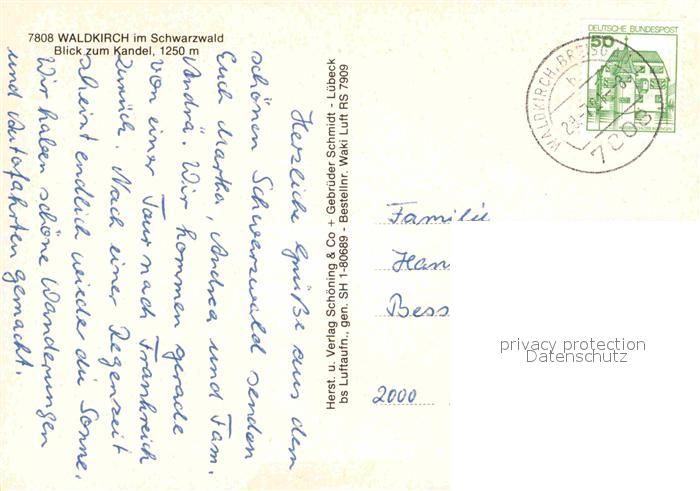 7808 WALDKIRCH im Schwarzwald
Blick zum Kandel, 1250 m
Herzliche Grüße aus dem
schönen Schwarzwald senden
Euch Martha, Andrea und Fam.
Andrä. Wir kommen gerade
von einer Tour nach Frankreich
zurück. Nach einer Regenzeit
scheint endlich wieder die Sonne.
Wir haben schöne Wanderungen
und Autofahrten gemacht.
Herst. u. Verlag Schöning & Co + Gebrüder Schmidt - Lübeck
bs Luftaufn., gen. SH 1-80689 - Bestellnr. Waki Luft RS 7909
DEUTSCHE BUNDESPOST
50
WALDKIRCH, BREISG
7808
Familie
Han
Bess
2000
privacy protection
Datenschutz